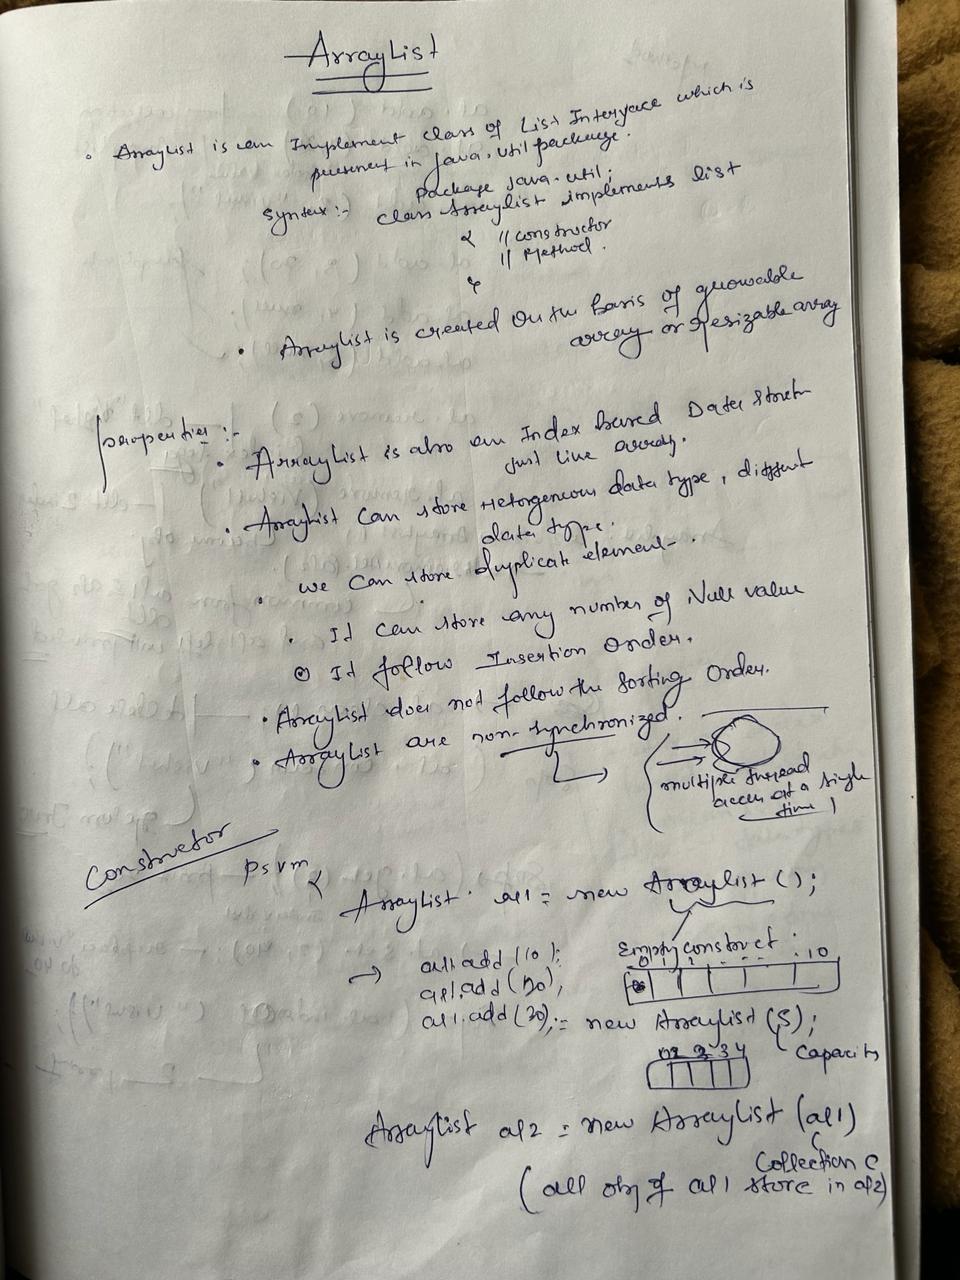 ArrayList
• ArrayList is an Implement class of List Interface which is
present in java.util package.
package java.util;
Syntax :- class Arraylist implements list
{ // constructor
// Method.
}
• ArrayList is created on the basis of growable
array or resizable array
properties :-
• ArrayList is also an Index based Data Struct
just like array.
• ArrayList can store Hetorgeneous data type, different
data type.
• we can store duplicate element.
• It can store any number of Null value
⊙ It follow Insertion Order.
• ArrayList does not follow the Sorting Order.
• ArrayList are non-synchronized.
multiple thread
access at a single
time
Constructor
psvm
{ ArrayList al1 = new Arraylist ();
→ al1.add (10); Empty construct
al1.add (20); 0 1 10
al1.add (30); = new ArrayList (5);
Capacity
ArrayList al2 = new ArrayList (al1)
Collection C
(all obj of al1 store in al2)